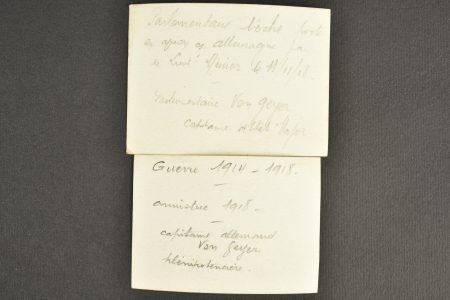 Parlementaire boche
allemagne
le Lieut Meinier le 11/11/18.
Parlementaire Von Geyer
capitaine d'Etat-Major
Guerre 1914-1918.
armistice 1918.
capitaine allemand
Von Geyer
plénipotencière.